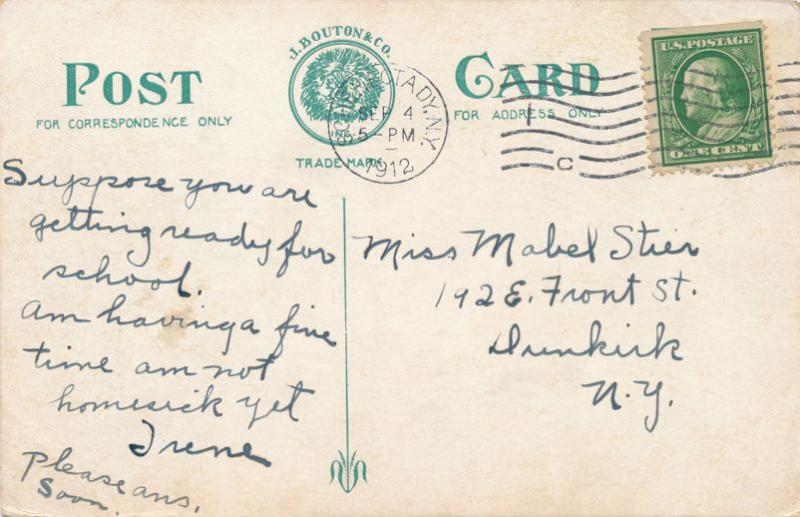 POST CARD
J. BOUTON & CO.
INC.
TRADE MARK
FOR CORRESPONDENCE ONLY
FOR ADDRESS ONLY
SCHENECTADY, N.Y.
SEP 4
5-PM
1912
C
U.S. POSTAGE
ONE CENT
Suppose you are
getting ready for
school.
Am having a fine
time am not
homesick yet
Irene
Please ans.
Soon.
Miss Mabel Stier
192 E. Front St.
Dunkirk
N.Y.